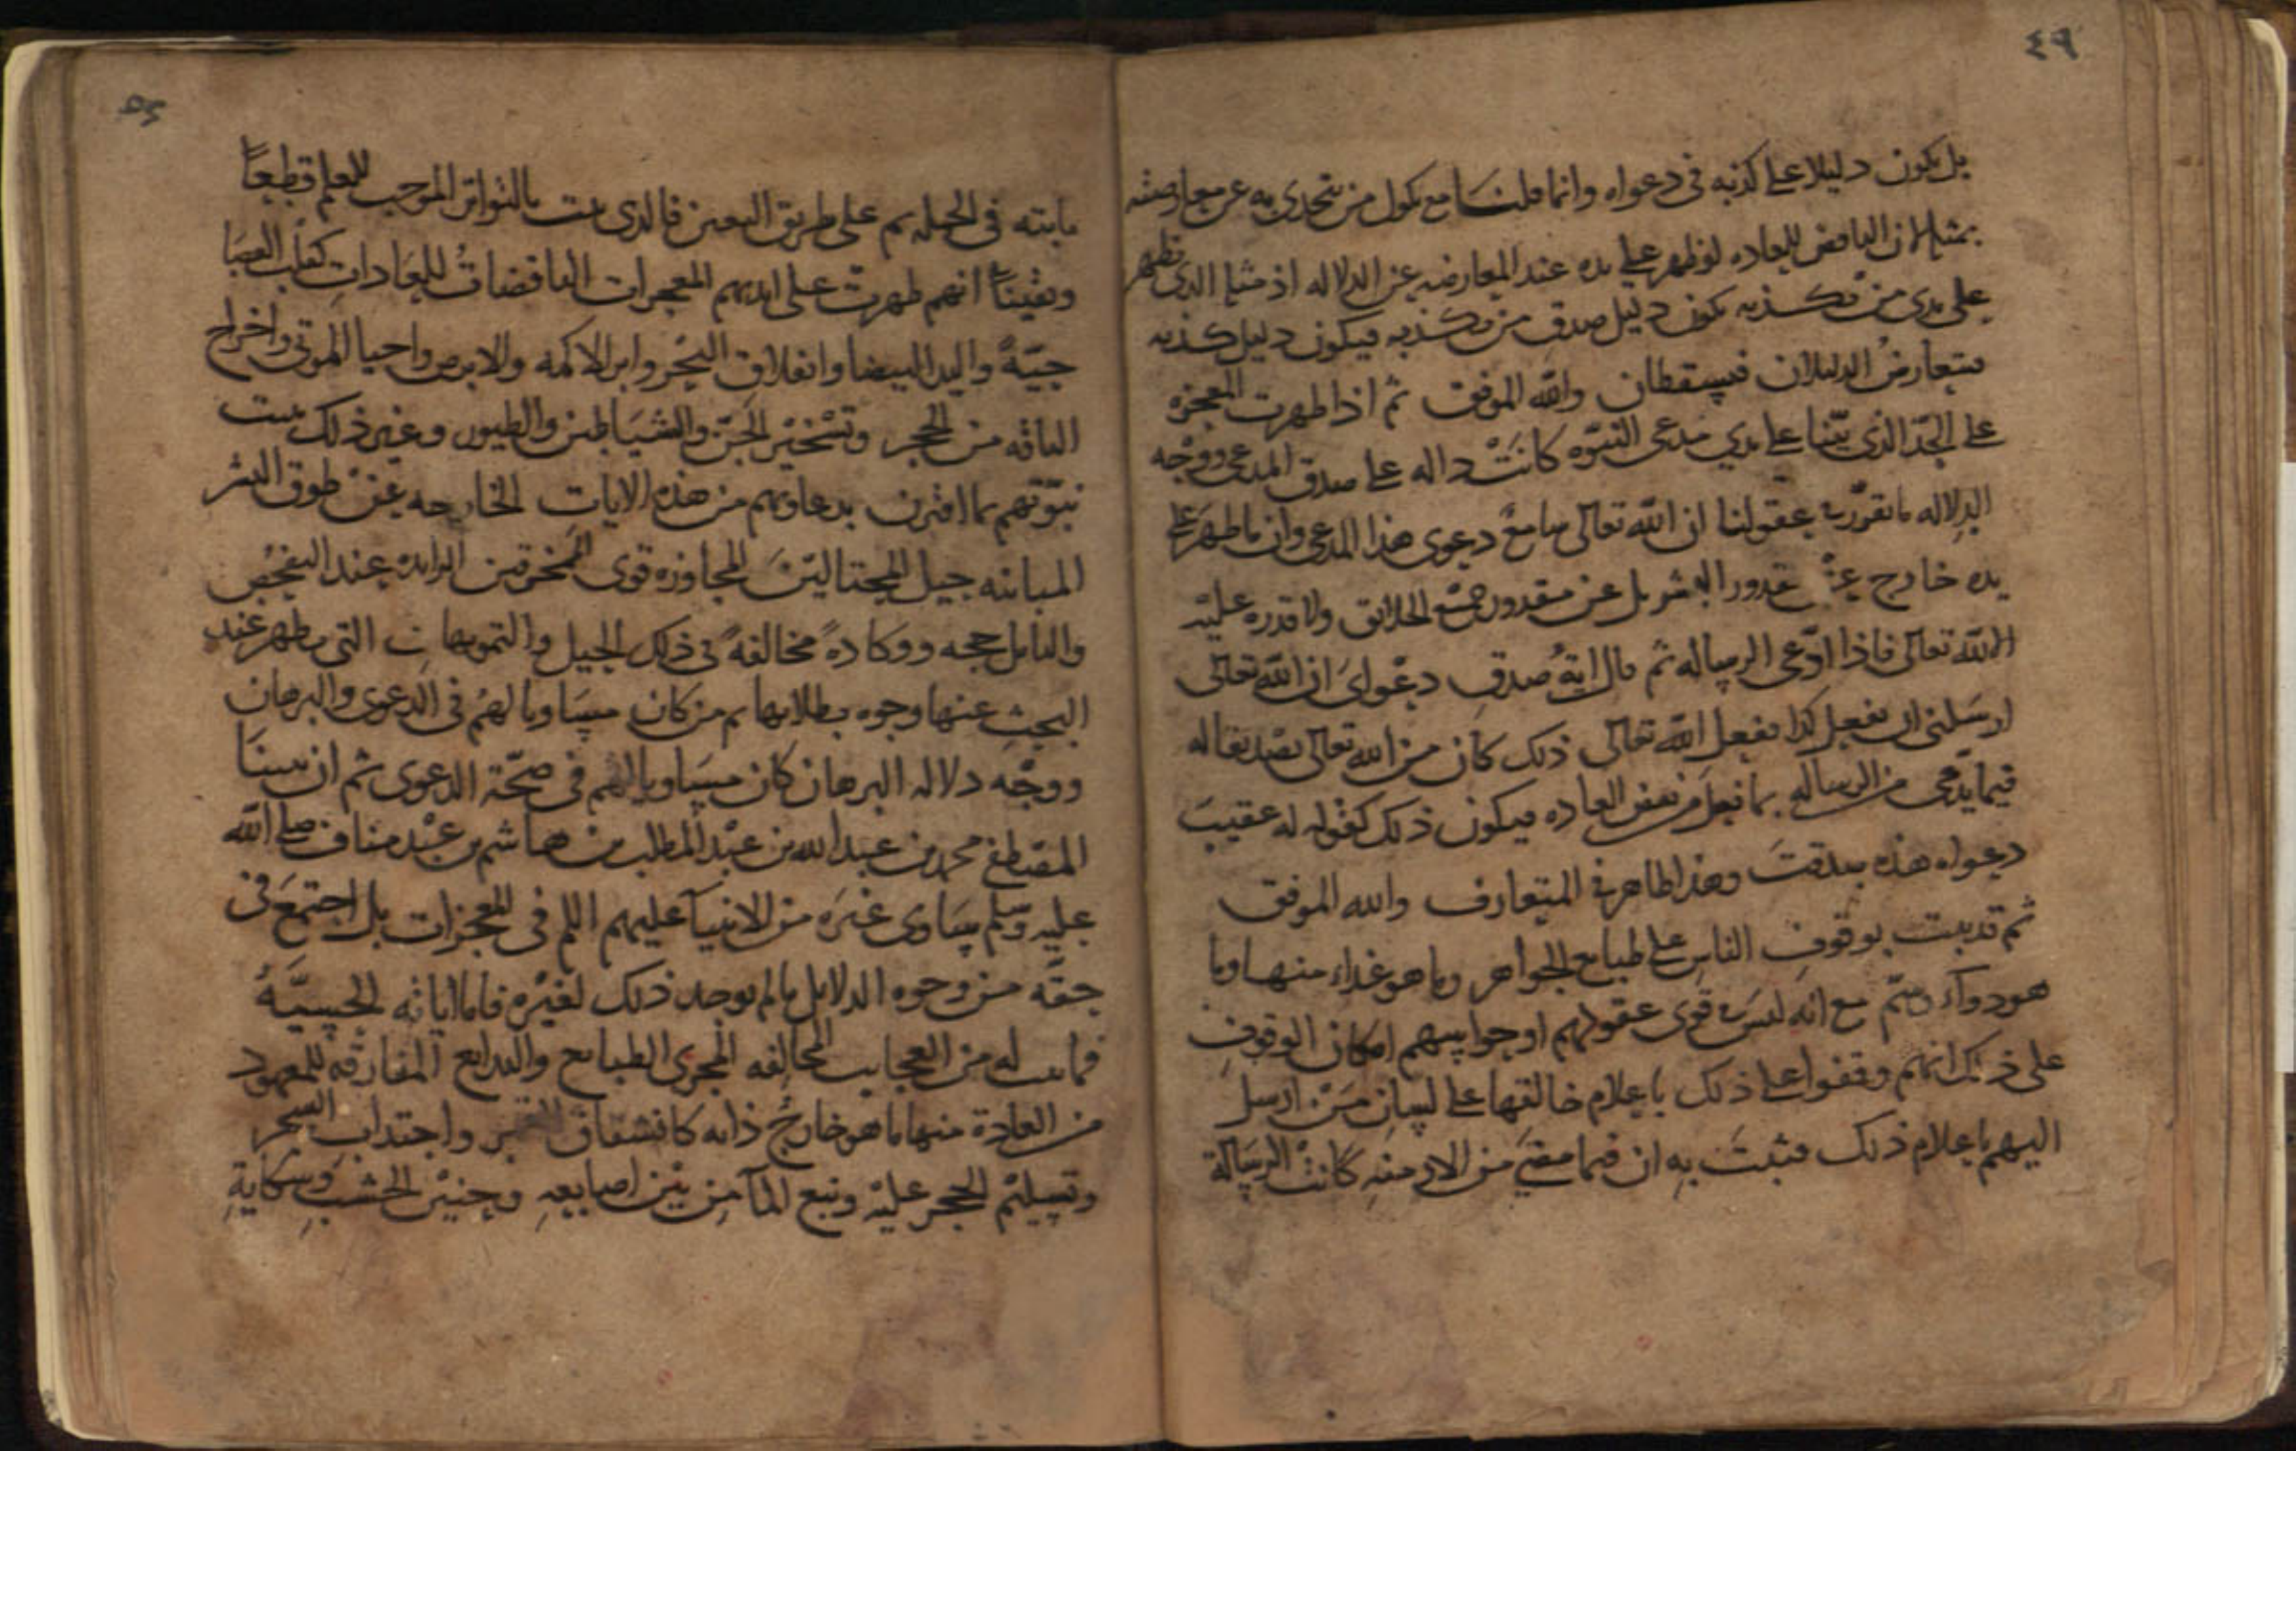 ٤٩
بل يكون دليلا على كذبه في دعواه وانما قلنا مع نكول من يتحدى به عن معارضته
بمثله لان الناقض للعاده لو ظهر على يده عند المعارضه عن الدلاله اذ مثله الذي يظهر
على يدى من يكذبه يكون دليل صدق من يكذبه فيكون دليل كذبه
فيتعارض الدليلان فيسقطان والله الموفق ثم اذا ظهرت المعجزة
على الحد الذي بينا على يدي مدعى النبوه كانت داله على صدق المدعى ووجه
الدلاله ما تقرر في عقولنا ان الله تعالى سامع دعوى هذا المدعى وان ما ظهر على
يده خارج عن مقدور البشر بل عن مقدور جميع الخلائق ولا قدره عليه
الا لله تعالى فاذا ادعى الرساله ثم قال اية صدق دعواى ان الله تعالى
ارسلنى ان يفعل كذا ففعل الله تعالى ذلك كان من الله تعالى تصديقا له
فيما يدعى من الرساله بما فعل من نقض العاده فيكون ذلك كقوله له عقيب
دعواه هذه صدقت وهذا ظاهر في المتعارف والله الموفق
ثم قد ثبت بوقوف الناس على طبايع الجواهر وما هو غذاء منها وما
هو دواء وسم مع انه ليس في قوى عقولهم او حواسهم امكان الوقوف
على ذلك انهم وقفوا على ذلك باعلام خالقها على لسان من ارسل
اليهم باعلام ذلك فثبت به ان فيما مضى من الازمنه كانت الرسالة
٥٠
ثابته في الجمله ثم على طريق التعين فالذي ثبت بالتواتر الموجب للعلم قطعا
ويقينا انهم ظهرت على ايديهم المعجزات الناقضات للعادات كقلب العصا
حية واليد البيضا وانفلاق البحر وابرا الاكمه والابرص واحيا الموتى واخراج
الناقه من الحجر وتسخير الجن والشياطين والطيور وغير ذلك ثبتت
نبوتهم بما اقترن بدعاويهم من هذه الايات الخارجه عن طوق البشر
المباينه حيل المحتالين المجاوزه قوى الممخرقين الزايده عند التفحص
والتامل حجه ووكادة مخالفة في ذلك الحيل والتمويهات التي يظهر عند
البحث عنها وجوه بطلانها ثم من كان مساويا لهم في الدعوى والبرهان
ووجه دلاله البرهان كان مساويا لهم في صحة الدعوى ثم ان نبينا
المصطفى محمد بن عبد الله بن عبد المطلب بن هاشم بن عبد مناف صلى الله
عليه وسلم يساوى غيره من الانبيآ عليهم السلم في المعجزات بل اجتمع في
حقه من وجوه الدلايل ما لم يوجد ذلك لغيره فاما اياته الحسية
فما ثبت له من العجايب المخالفه لمجرى الطبايع والبدايع المفارقه للمعهود
من العادة منها ما هو خارج ذاته كانشقاق القمر واجتذاب الشجر
وتسليم الحجر عليه ونبع المآ من بين اصابعه وحنين الخشب وشكاية